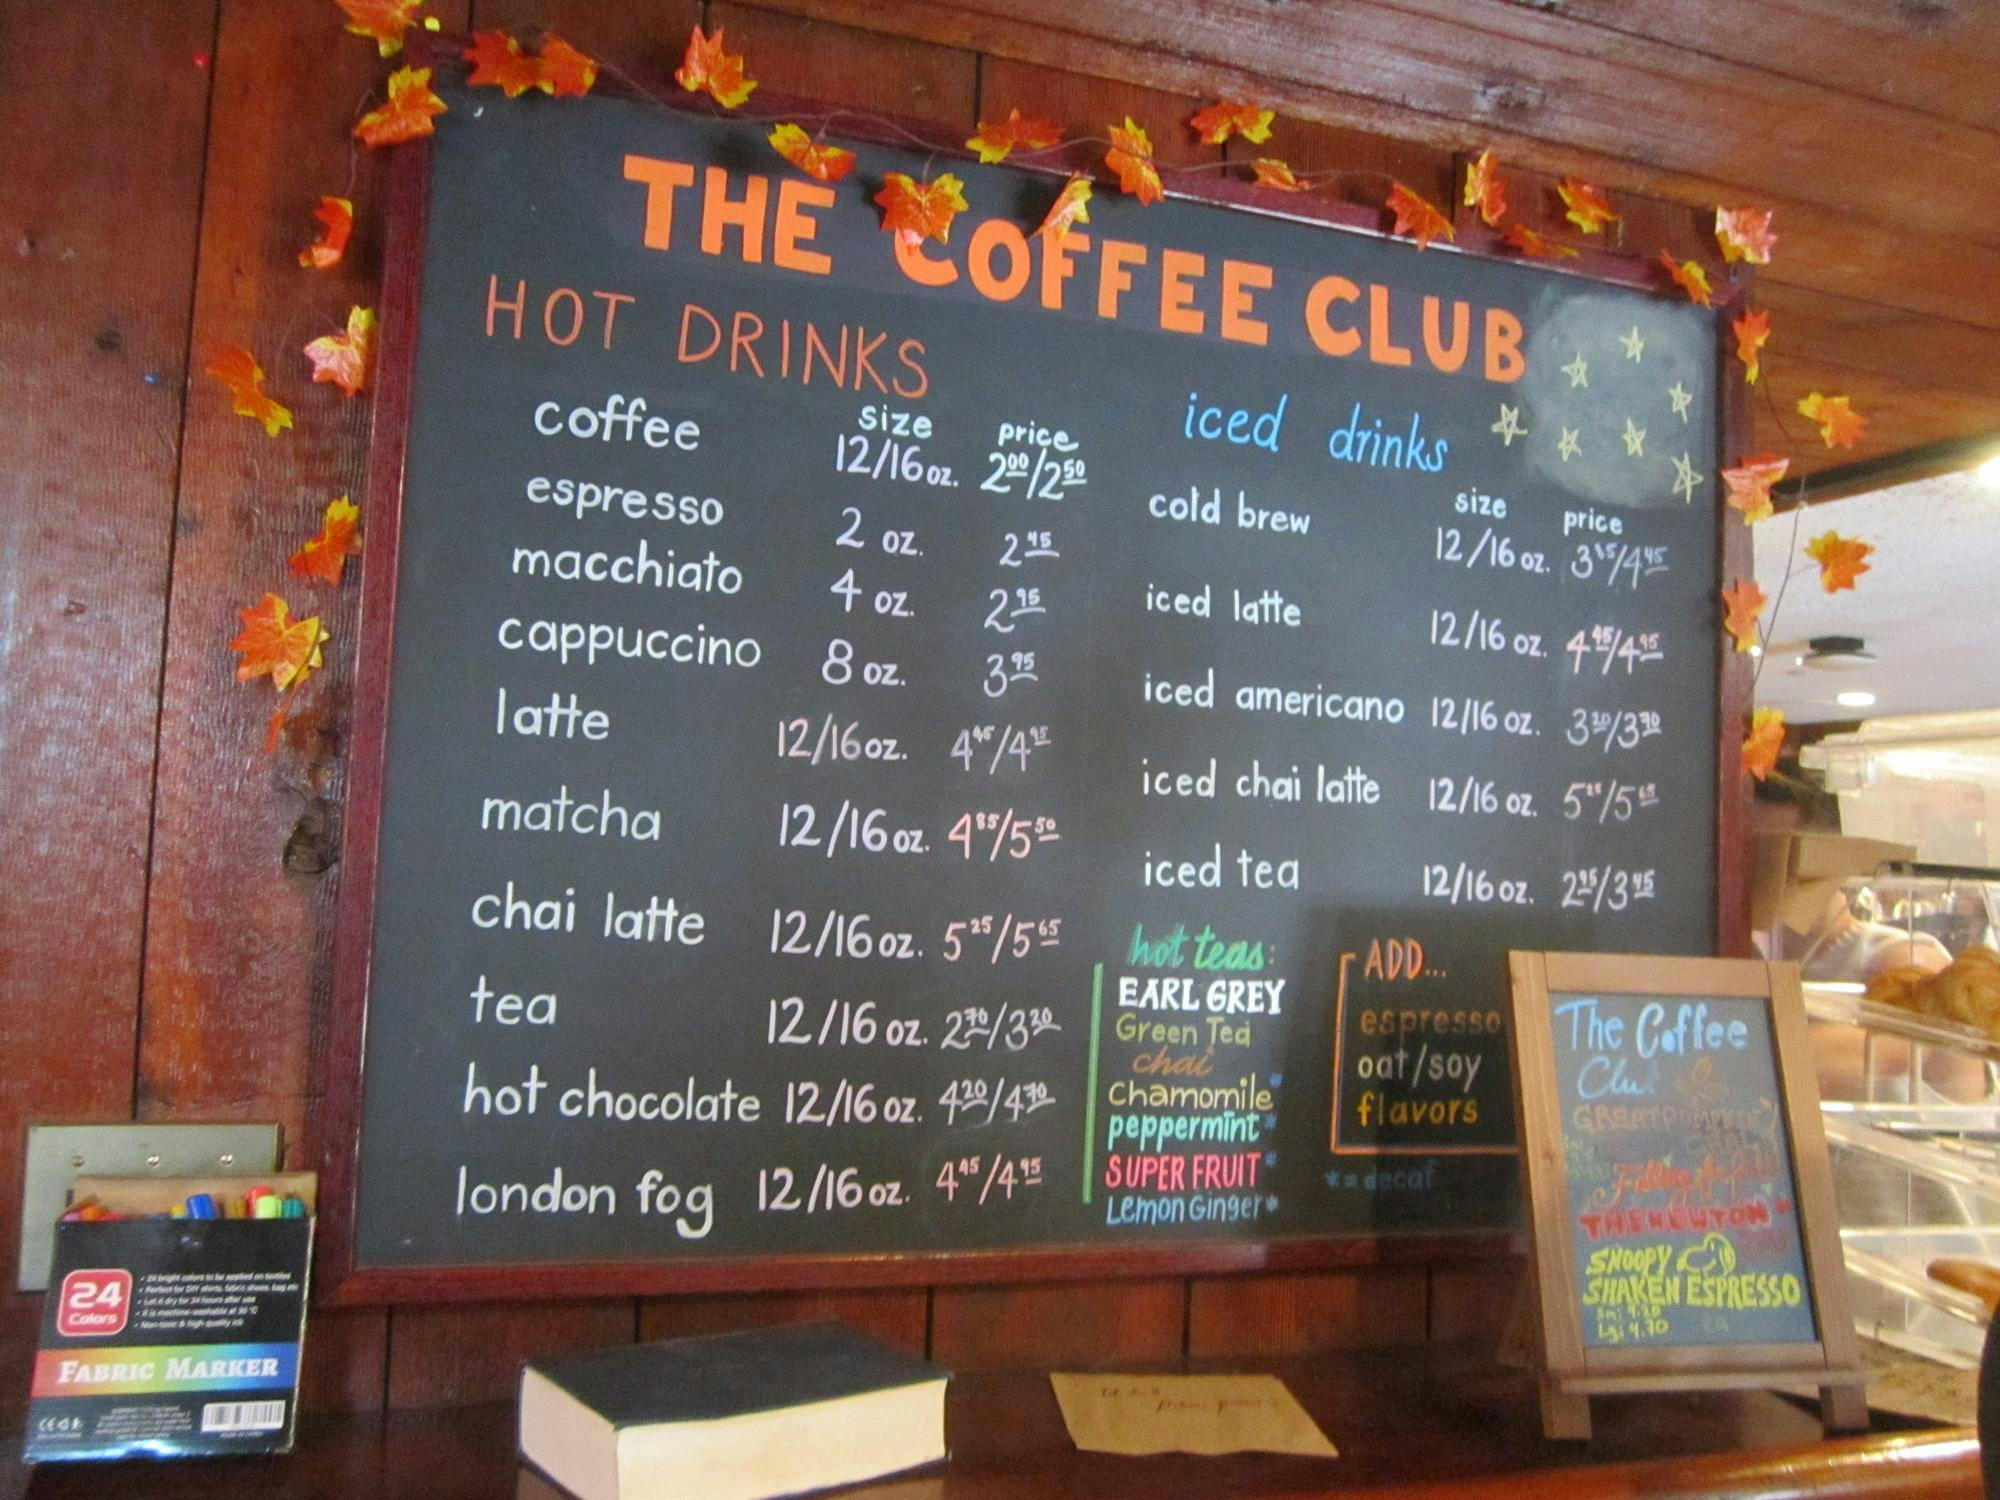 THE COFFEE CLUB
HOT DRINKS
size price
coffee 12/16 oz. 2.00/2.50
espresso 2 oz. 2.45
macchiato 4 oz. 2.95
cappuccino 8 oz. 3.95
latte 12/16 oz. 4.45/4.95
matcha 12/16 oz. 4.85/5.50
chai latte 12/16 oz. 5.25/5.65
tea 12/16 oz. 2.70/3.20
hot chocolate 12/16 oz. 4.20/4.70
london fog 12/16 oz. 4.45/4.95
iced drinks
size price
cold brew 12/16 oz.
iced latte 12/16 oz. 4.45/4.95
iced americano 12/16 oz. 3.20/3.70
iced chai latte 12/16 oz. 5.25/5.65
iced tea 12/16 oz. 2.95/3.45
hot teas:
EARL GREY
Green Tea
chai
Chamomile*
peppermint*
SUPER FRUIT*
Lemon Ginger*
ADD...
espresso
oat/soy
flavors
*=decaf
The Coffee
Club
THE NEWTON
SNOOPY
SHAKEN ESPRESSO
Sm: 4.20
Lg: 4.70
24
Colors
• 24 bright colors to be applied on textiles
• Perfect for DIY shirts, fabric shoes, bag etc
• Let it dry for 24 hours after use
• It is machine-washable at 30 °C
• Non-toxic & high quality ink
FABRIC MARKER